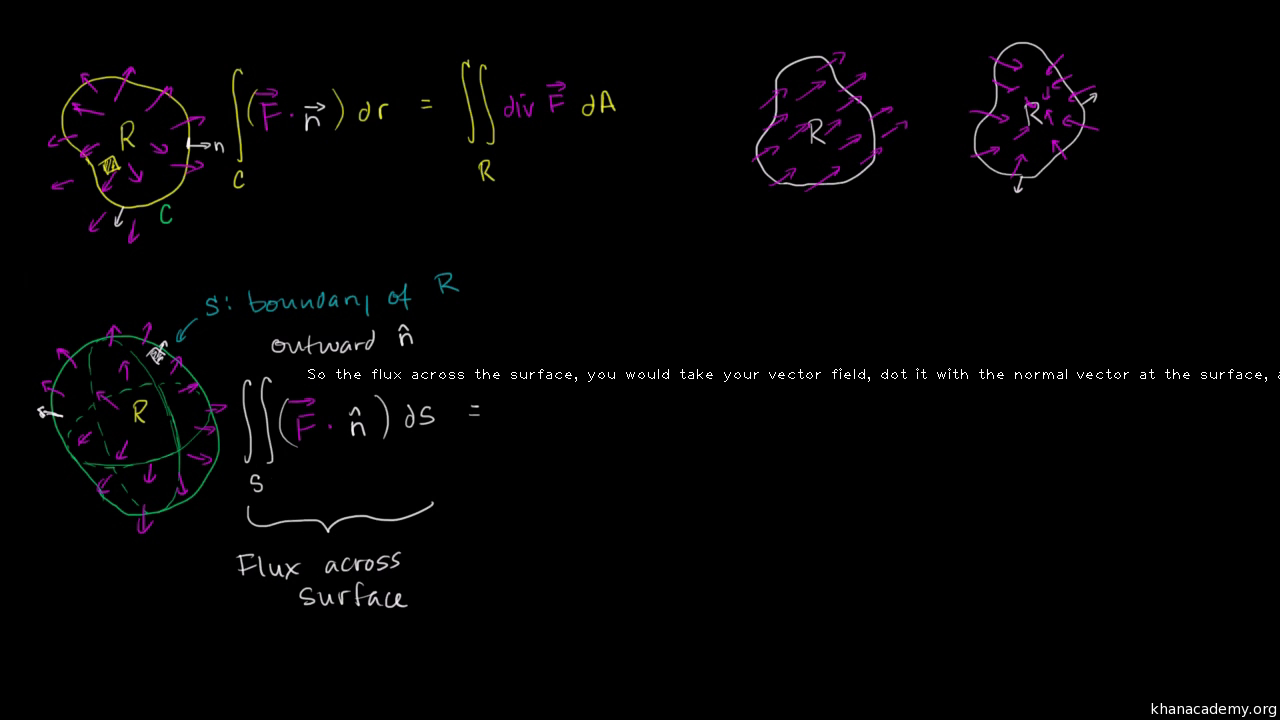 ∫_C (F⃗ · n⃗) dr = ∬_R div F⃗ dA
R
n
C
R
R
S: boundary of R
outward n̂
So the flux across the surface, you would take your vector field, dot it with the normal vector at the surface,
R
∬_S (F⃗ · n̂) dS =
Flux across
surface
khanacademy.org